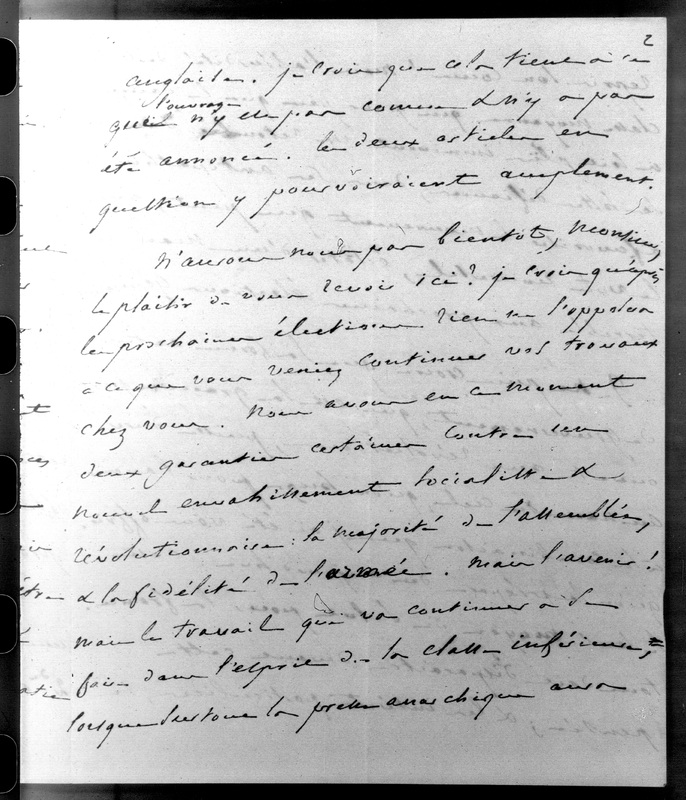 2
anglaise. je crois que cela tient à ce
que l'ouvrage n'y est pas connu & n'y a pas
été annoncé. les deux articles en
question y pourvoiraient amplement.
N'aurons nous pas bientôt, Monsieur,
le plaisir de vous revoir ici? je crois qu'après
les prochaines élections rien ne s'opposera
à ce que vous veniez continuer vos travaux
chez vous. Nous avons en ce moment
deux garanties certaines contre un
nouvel envahissement socialiste &
révolutionnaire: la majorité de l'assemblée,
& la fidélité de l'armée. mais l'avenir!
mais le travail qui va continuer à se
faire dans l'esprit de la classe inférieure,
lorsque surtout la presse anarchique aura